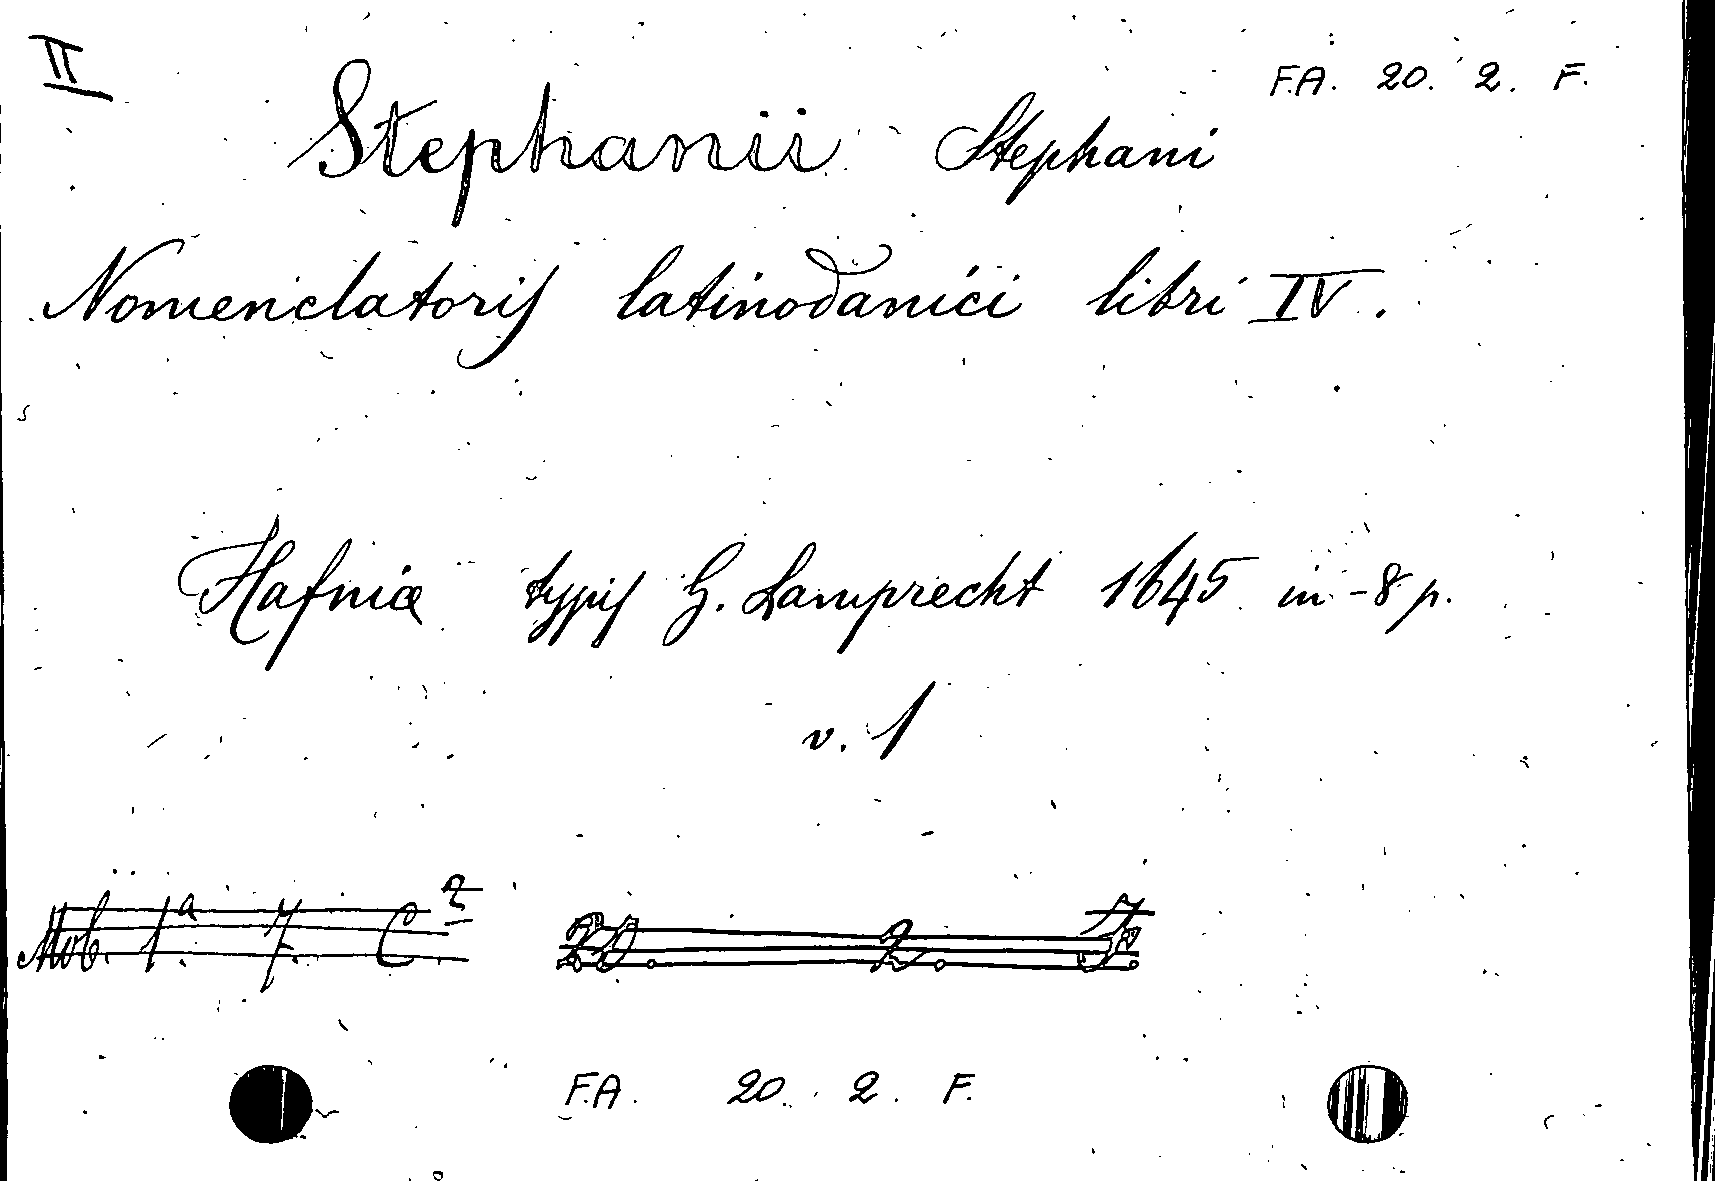 II
F.A. 20. 2. F.
Stephanii Stephani
Nomenclatoris latinodanici libri IV.
Hafniæ typis G. Lamprecht 1645 in-8 p.
v. 1
Mob. 1.a 7. C.2 20. 2. F.
F.A. 20. 2. F.